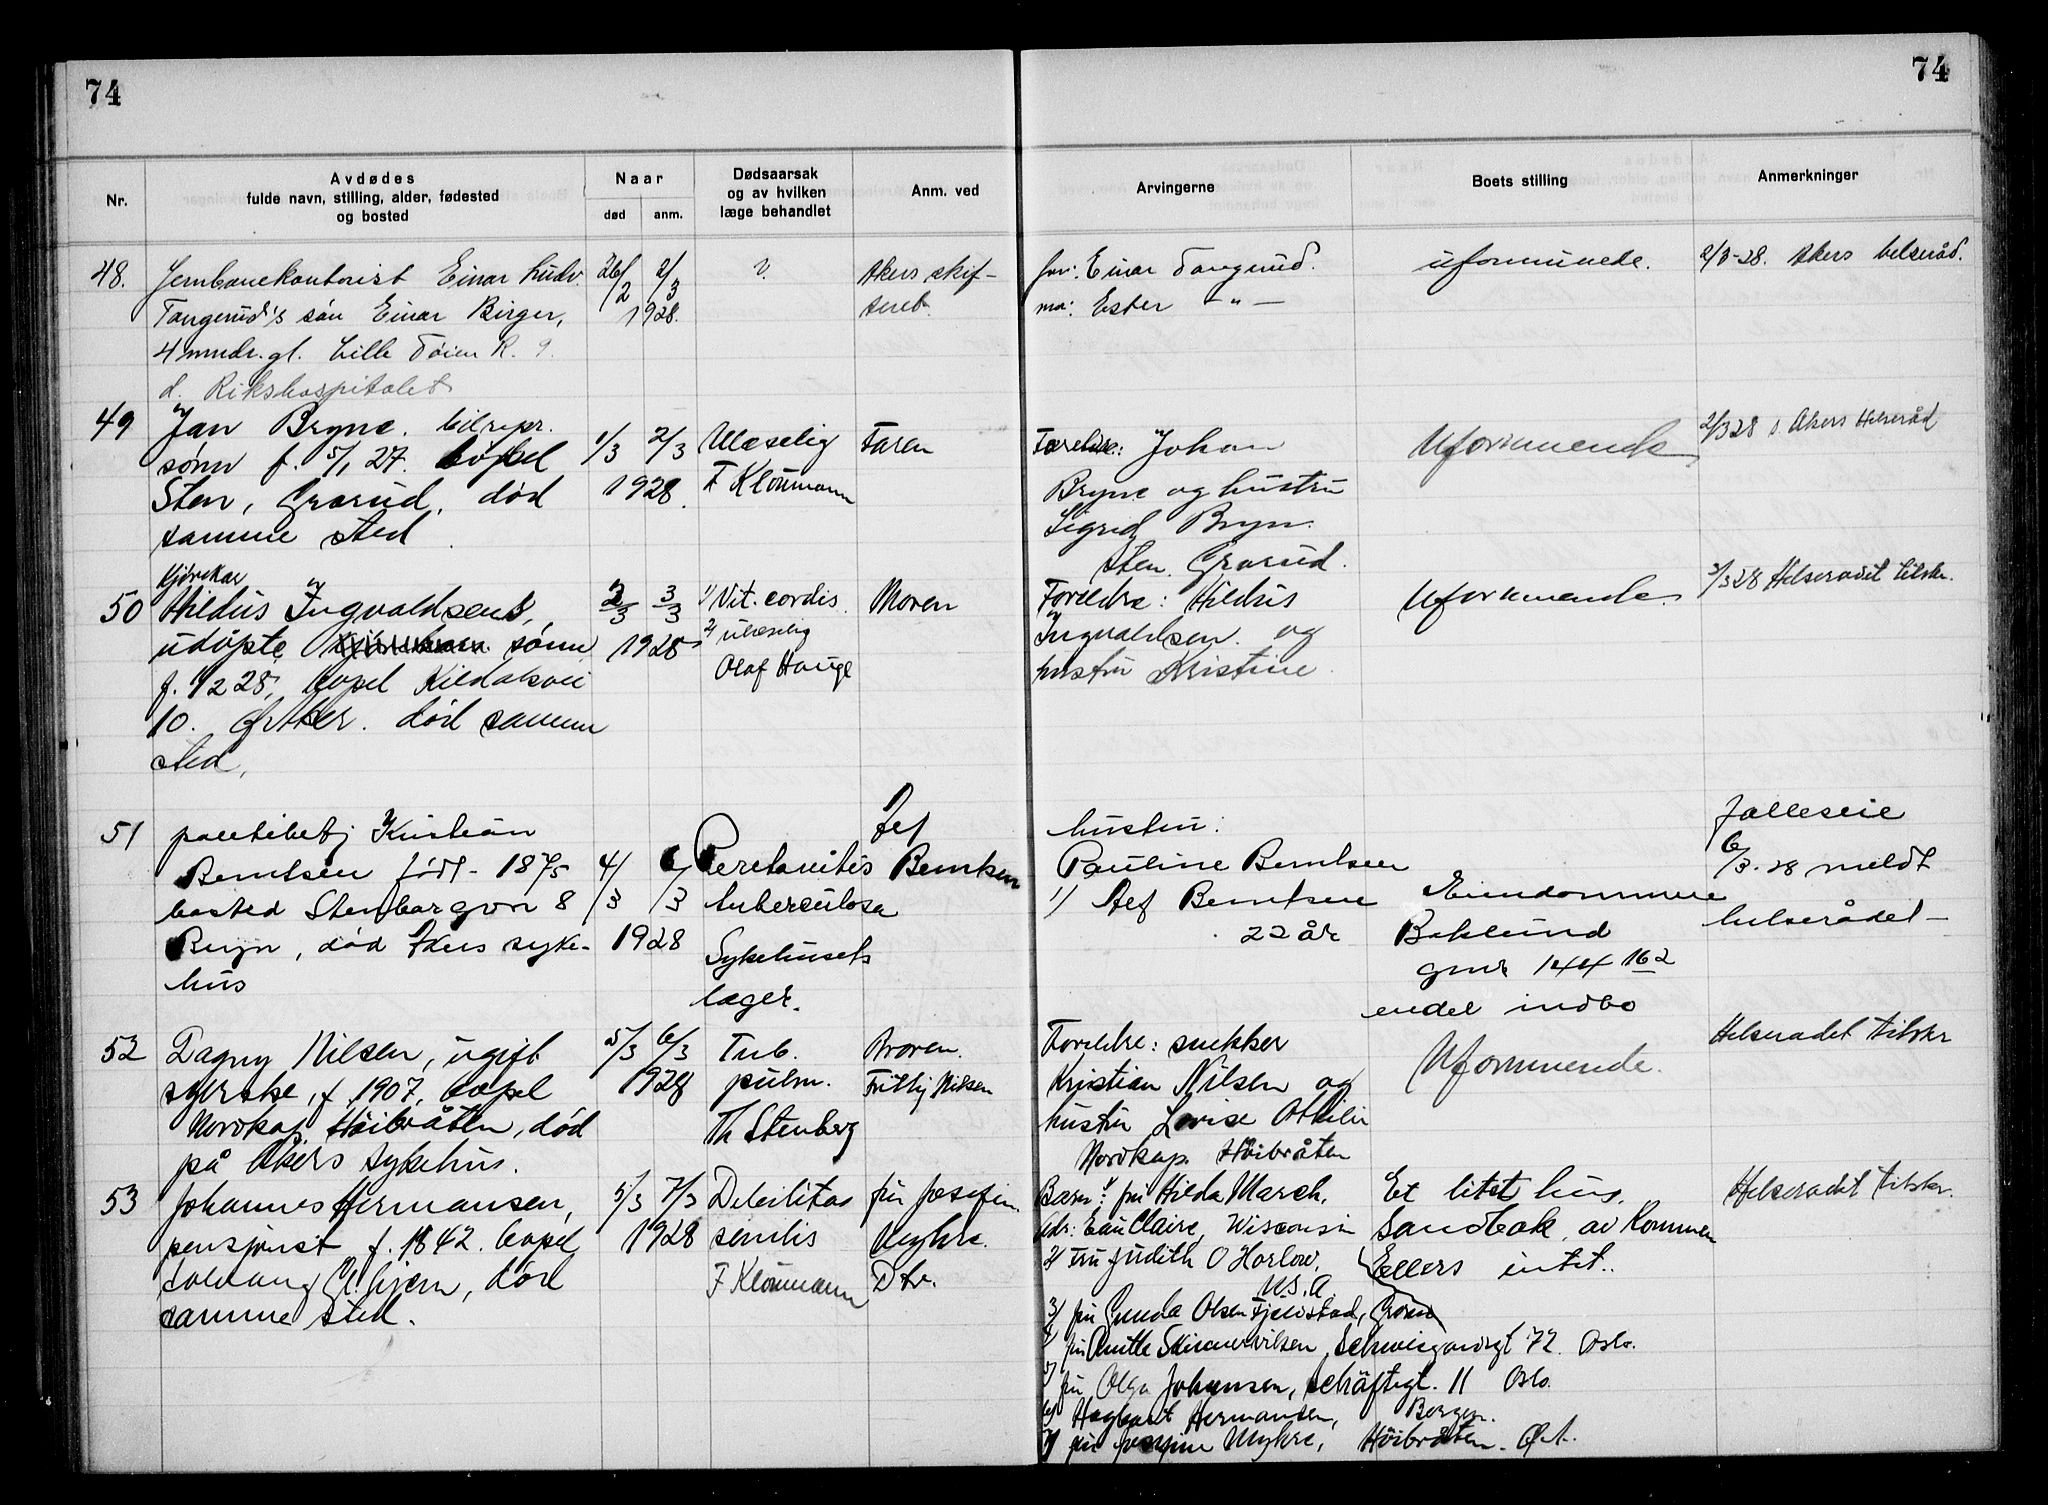 74
74
Nr.
Avdødes
fulde navn, stilling, alder, fødested
og bosted
Naar
død anm.
Dødsaarsak
og av hvilken
læge behandlet
Anm. ved
Arvingerne
Boets stilling
Anmerkninger
48. Jernbanekontorist Einar Ludv.
Tangerud's søn Einar Birger,
4 mndr. gl. Lille Tøien R. 9.
d. Rikshospitalet
26/2 2/3
1928.
?
Akers skif-
teret
far: Einar Tangerud.
ma: Ester - " -
uformuende.
2/3-28. Akers helseråd.
49 Jan Bryne. bilrepr.
sønn f. 5/1 27. bopel
Sten, Grorud, død
samme sted.
1/3 2/3
1928.
Ulæselig
F Kloumann
Faren
Foreldre: Johan
Bryne og hustru
Sigrid Bryn.
Sten. Grorud.
Uformuende
2/3 28 s. Akers Helseråd
50 Kjørekar
Hildus Ingvaldsens,
udøpte sønn
f. 1/2 28, bopel Kildalsvei
10. Ø. Aker. død samme
sted.
2/3 3/3
1928
1/ Vit. cordis.
2/ ulæselig
Olaf Hauge
Moren
Foreldre: Hildus
Ingvaldsen og
hustru Kristine.
Uformuende.
3/3 28 Helseradet tilskr.
51 politibetj Kristian
Berntsen født - 1875
bosted 8
Bryn, død Akers syke-
hus
4/3 6/3
1928
Peretonitis
tuberculosa
Sykehusets
læger.
Berntsen
hustru:
Pauline Berntsen
1/ Berntsen
22 år
Eiendommen
Beklund
gnr 144 162
endel indbo
Felleseie
6/3-28 meldt
helserådet -
52 Dagny Nilsen, ugift
syerske, f 1907, bopel
Nordkap Høibråten, død
på Akers sykehus.
5/3 6/3
1928
Tub.
pulm.
Th Stenberg
Broren.
Frithj Nilsen
Foreldre: snekker
Kristian Nilsen og
hustru Lovise Othilie
Nordkap. Høibråten
Uformuende.
Helseradet tilskr
53 Johannes Hermansen,
pensjonist f. 1842. bopel
Solvang, død
samme sted.
5/3 7/3
1928
Debilitas
senilis
F Kloumann
fru Josefin.
Myhre.
Dtr.
Barn: 1/ fru Hilda March.
Adr: Eau Claire, Wisconsin
2/ Fru Judith O Harlow,
U.S.A.
3/ fru Gunda Olsen Fjeldstad, Grorud
4/ fru Skinnervilsen, Schweigaardsgt 72. Oslo.
5/ fru Olga Johansen, Schäftsgt. 11 Oslo.
6/ Hagbart Hermansen, Bergen.
7/ fru Josefine Myhre, Høibråten. Ø. A.
Et litet hus.
Sandbak, av Kommen
Ellers intet.
Helseradet tilskr.